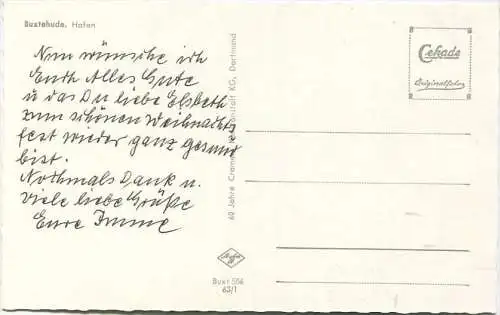 Buxtehude, Hafen
Nun wünsche ich
Euch Alles Gute
u das Du liebe Elsbeth
zum schönen Weihnachts
fest wieder ganz gesund
bist.
Nochmals Dank u.
viele liebe Grüße
Eure Imme
60 Jahre Cramers Kunstanstalt KG, Dortmund
Cekade
Originalfoto
Agfa
Buxt 556
63/1